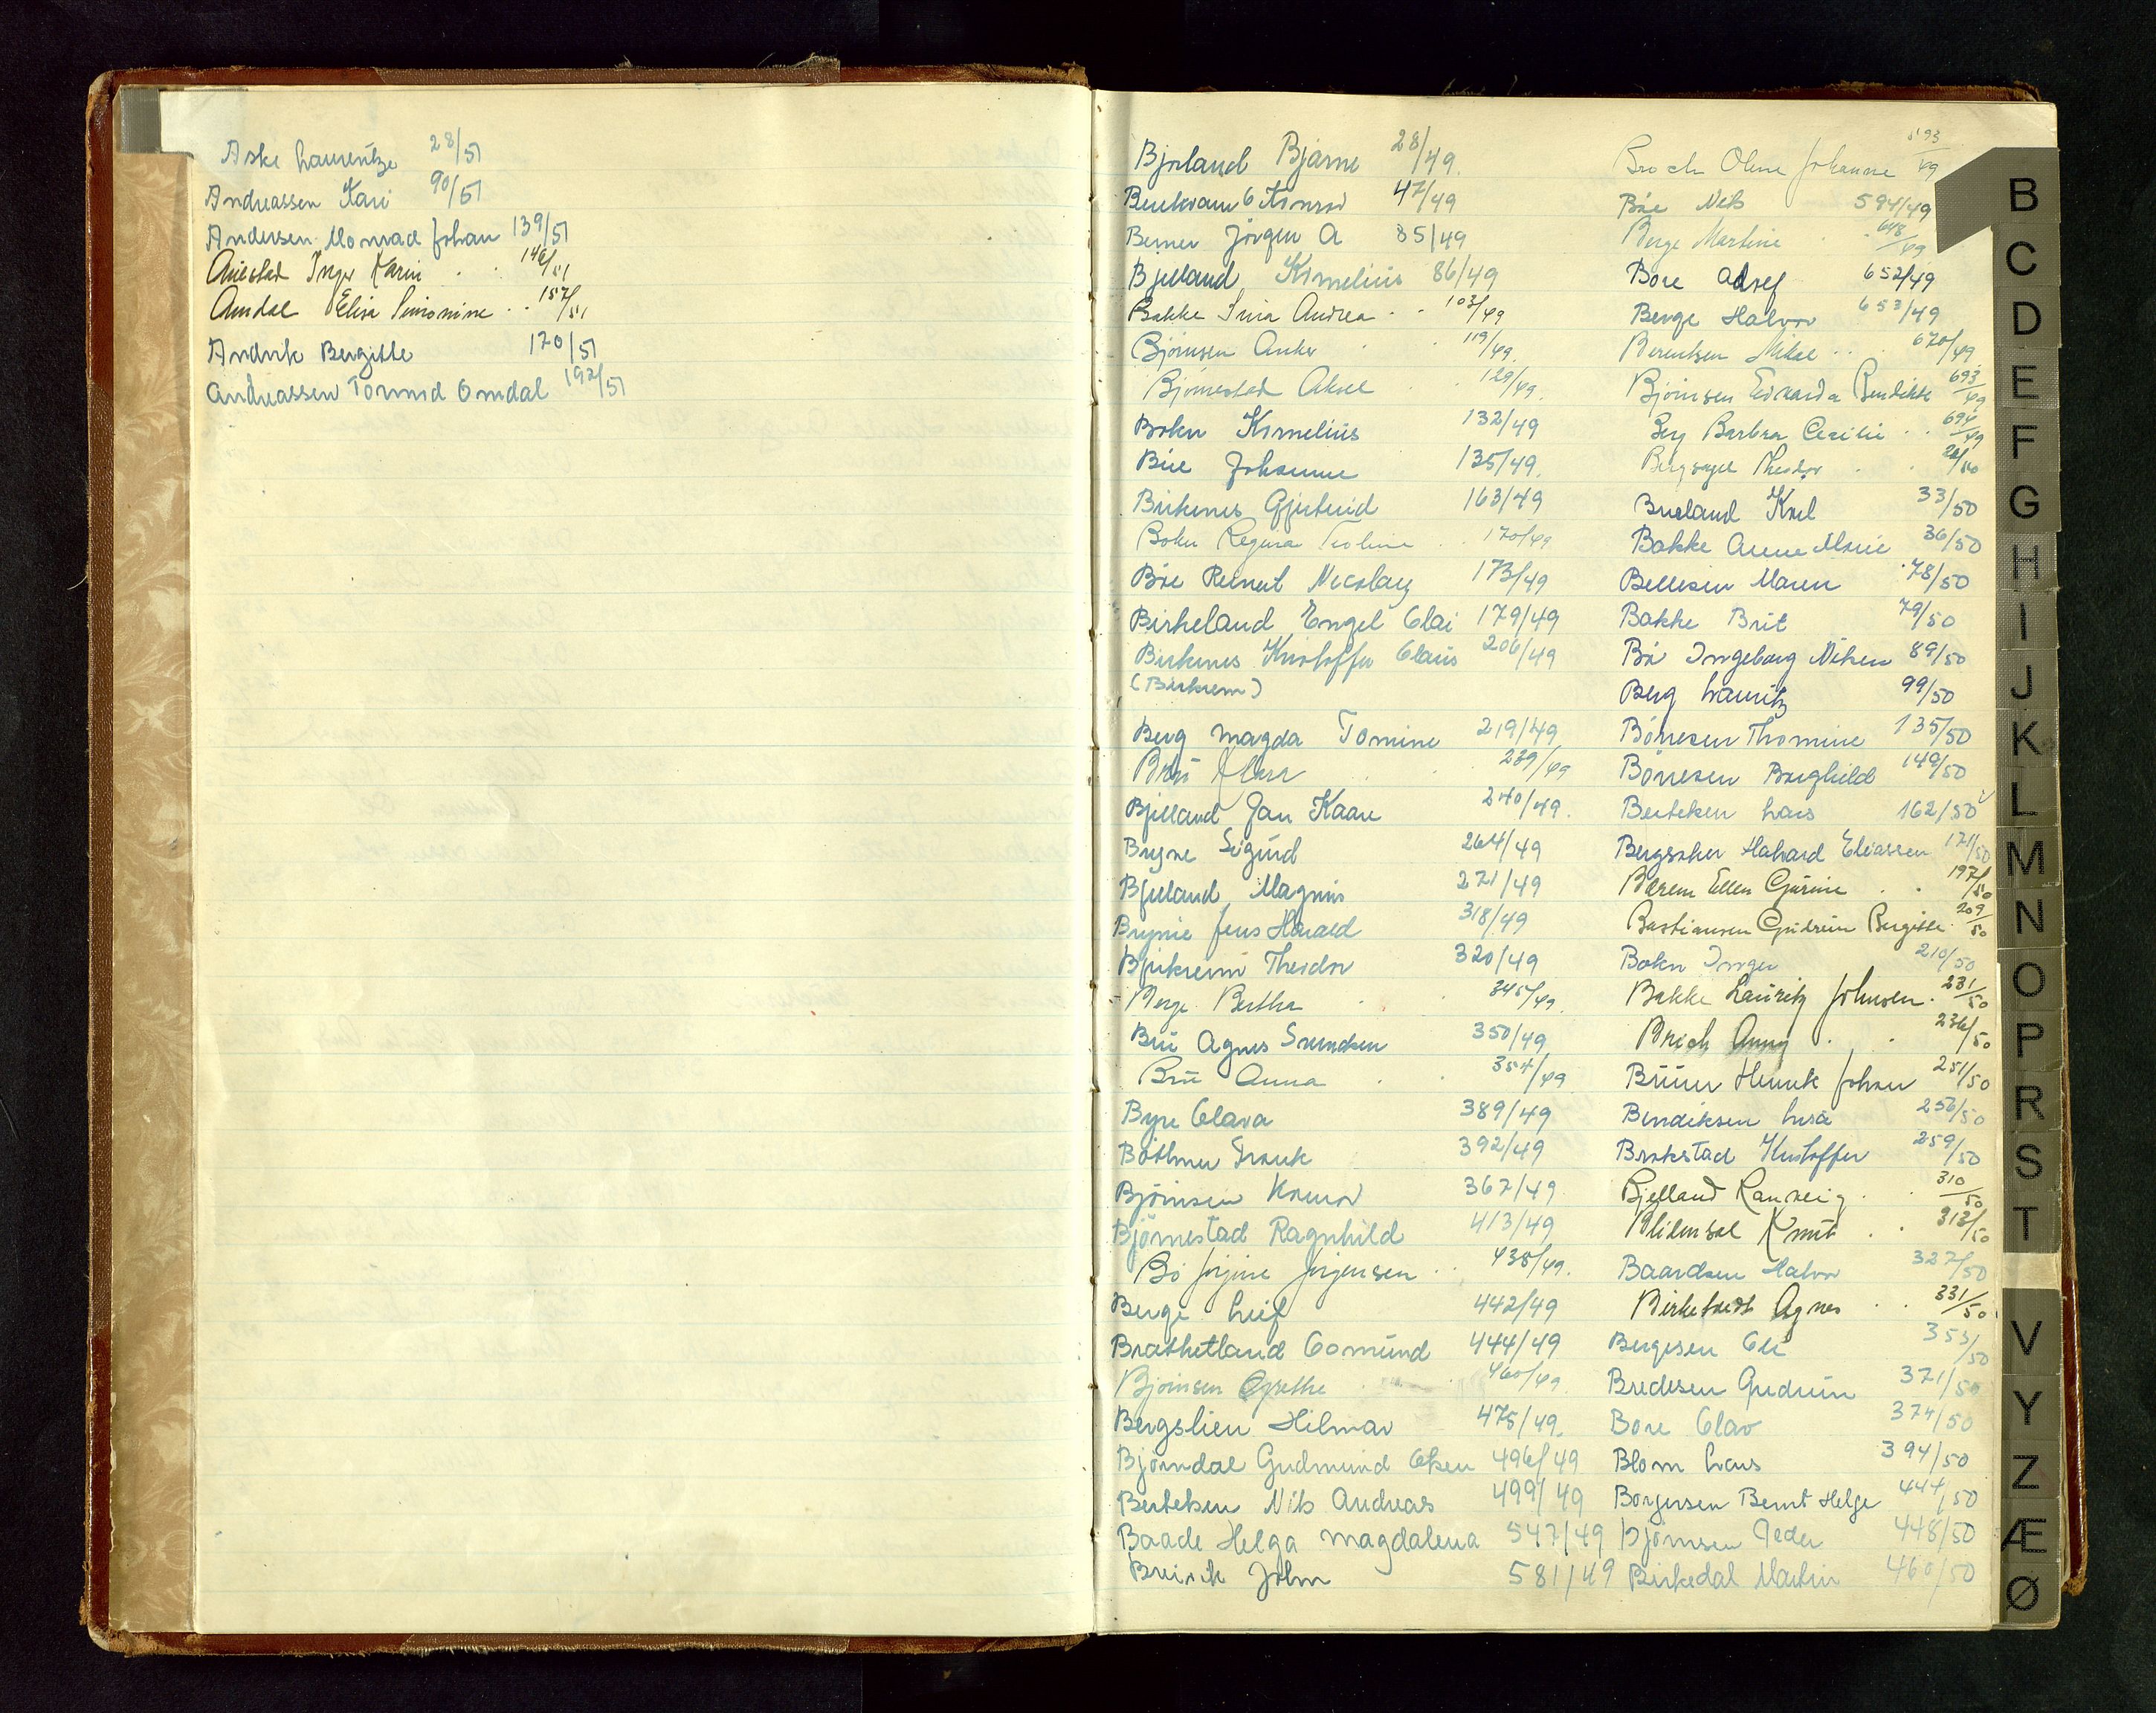 Aske Laurentze 28/51
Andreassen Kari 90/51
Andersen Monrad Johan 139/51
Auestad Inger Karin 146/51
Amdal Elisa Simonine 157/51
Andvik Bergitte 170/51
Andreassen Tormod Omdal 192/51
Bjorland Bjarne 28/49.
47/49
Berner Jörgen A 85/49
Bjelland Kornelius 86/49
Bakke Sina Andrea 103/49
Björnsen Anker 119/49.
Björnestad Aksel 129/49.
Bokn Kornelius 132/49
Bue Johanne 135/49.
Birkenes Gjertrud 163/49
Bokn Regina 170/49
Böe Reinert 173/49
Birkeland Engel Olai 179/49
Birkenes Kristoffer Olaus 206/49
(Birkrem)
Berg Magda Tomine 219/49
Brú Klara 239/49
Bjelland Jan Kaare 240/49.
Bryne Sigurd 264/49
Bjelland Magnus 271/49
Brynie Jens Harald 318/49
Bjerkreim Theodor 320/49
Berge Bertha 345/49.
Brú Agnes Svendsen 350/49
Brú Anna 354/49
Byre Olava 389/49
Böthner Frank 392/49
Björnsen Konrad 367/49
Björnestad Ragnhild 413/49
Bö Jörgine Jörgensen 435/49.
Berge Leif 442/49
Brathetland Gomund 444/49
Björnsen Grethe 460/49.
Bergslien Hilmar 475/49.
Björndal Gudmund Olsen 496/49
Bertelsen Nils Andreas 499/49
Baade Helga Magdalena 547/49
Breivik John 581/49
Broch Oline Johanne 593/49
Böe Nils 594/49
Berge Martine 648/49
Bore Adolf 652/49
Berge Halvor 653/49
Berentsen Mikal 670/49
Björnsen Edvarda Bendikte 693/49
Berg Barbra Cecilie 694/49
Bergsagel Theodor
Bueland Karl 33/50
Bakke Anne Marie 36/50
Bellesen Maren 78/50
Bakke Brit 79/50
Bö Ingeborg Nilsen 89/50
Berg Lauritz 99/50
Börresen Thomine 135/50
Börresen Borghild 149/50
Bertelsen Lars 162/50
Bergsaker Halvard Eliassen 171/50
Bærem Ellen Gurine 197/50
Bastiansen Gudrun Bergitte 209/50
Bokn Inger 210/50
Bakke Lauritz Johnsen 231/50
Brich Anny 236/50
Henrik Johan 251/50
Bendiksen Lisa 256/50
Brokstad Kristoffer 259/50
Bjelland Rannveig 310/50
Blidensol Knut 313/50
Baardsen Halvor 327/50
Birkehedt Agnes 331/50
Bergesen Oli 353/50
Bredesen Gudrun 371/50
Bore Olav 374/50
Blom Lars 394/50
Borgersen Bernt Helge 444/50
Björnsen Peder 448/50
Birkedal Martin 460/50
B
C
D
E
F
G
H
I
J
K
L
M
N
O
P
R
S
T
V
Y
Z
Æ
Ø